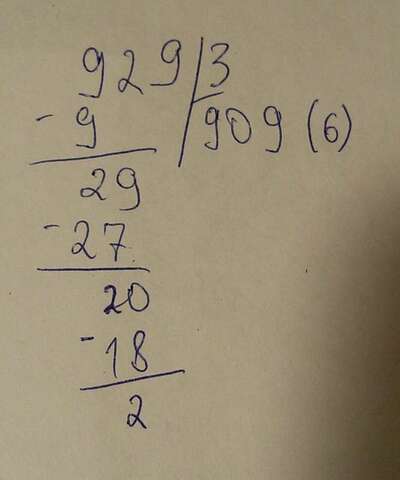 929 3
- 9 909 (6)
29
- 27
20
- 18
2